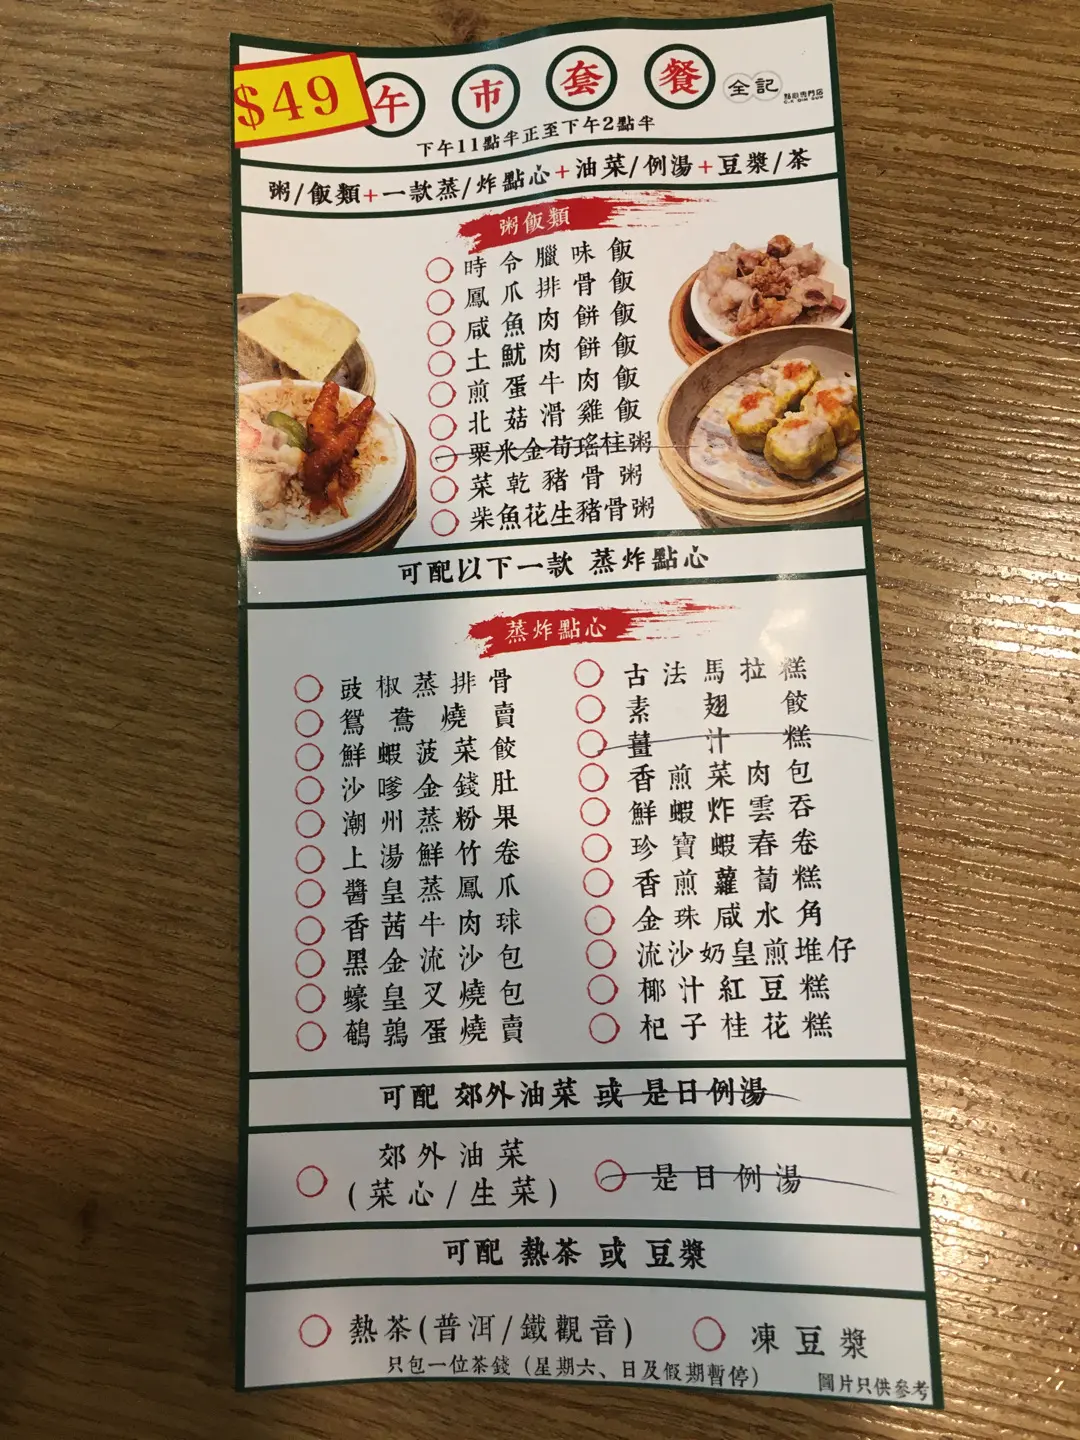 $49
午市套餐
全記
點心專門店
下午11點半正至下午2點半
粥/飯類+一款蒸/炸點心+油菜/例湯+豆漿/茶
粥飯類
時令臘味飯
鳳爪排骨飯
咸魚肉餅飯
土魷肉餅飯
煎蛋牛肉飯
北菇滑雞飯
粟米金荀瑤柱粥
菜乾豬骨粥
柴魚花生豬骨粥
可配以下一款 蒸炸點心
蒸炸點心
豉椒蒸排骨
鴛鴦燒賣
鮮蝦菠菜餃
沙嗲金錢肚
潮州蒸粉果
上湯鮮竹卷
醬皇蒸鳳爪
香茜牛肉球
黑金流沙包
蠔皇叉燒包
鵪鶉蛋燒賣
古法馬拉糕
素翅餃
薑汁糕
香煎菜肉包
鮮蝦炸雲吞
珍寶蝦春卷
香煎蘿蔔糕
金珠咸水角
流沙奶皇煎堆仔
椰汁紅豆糕
杞子桂花糕
可配 郊外油菜 或 是日例湯
郊外油菜
(菜心/生菜)
是日例湯
可配 熱茶 或 豆漿
熱茶(普洱/鐵觀音)
凍豆漿
只包一位茶錢(星期六、日及假期暫停)
圖片只供參考